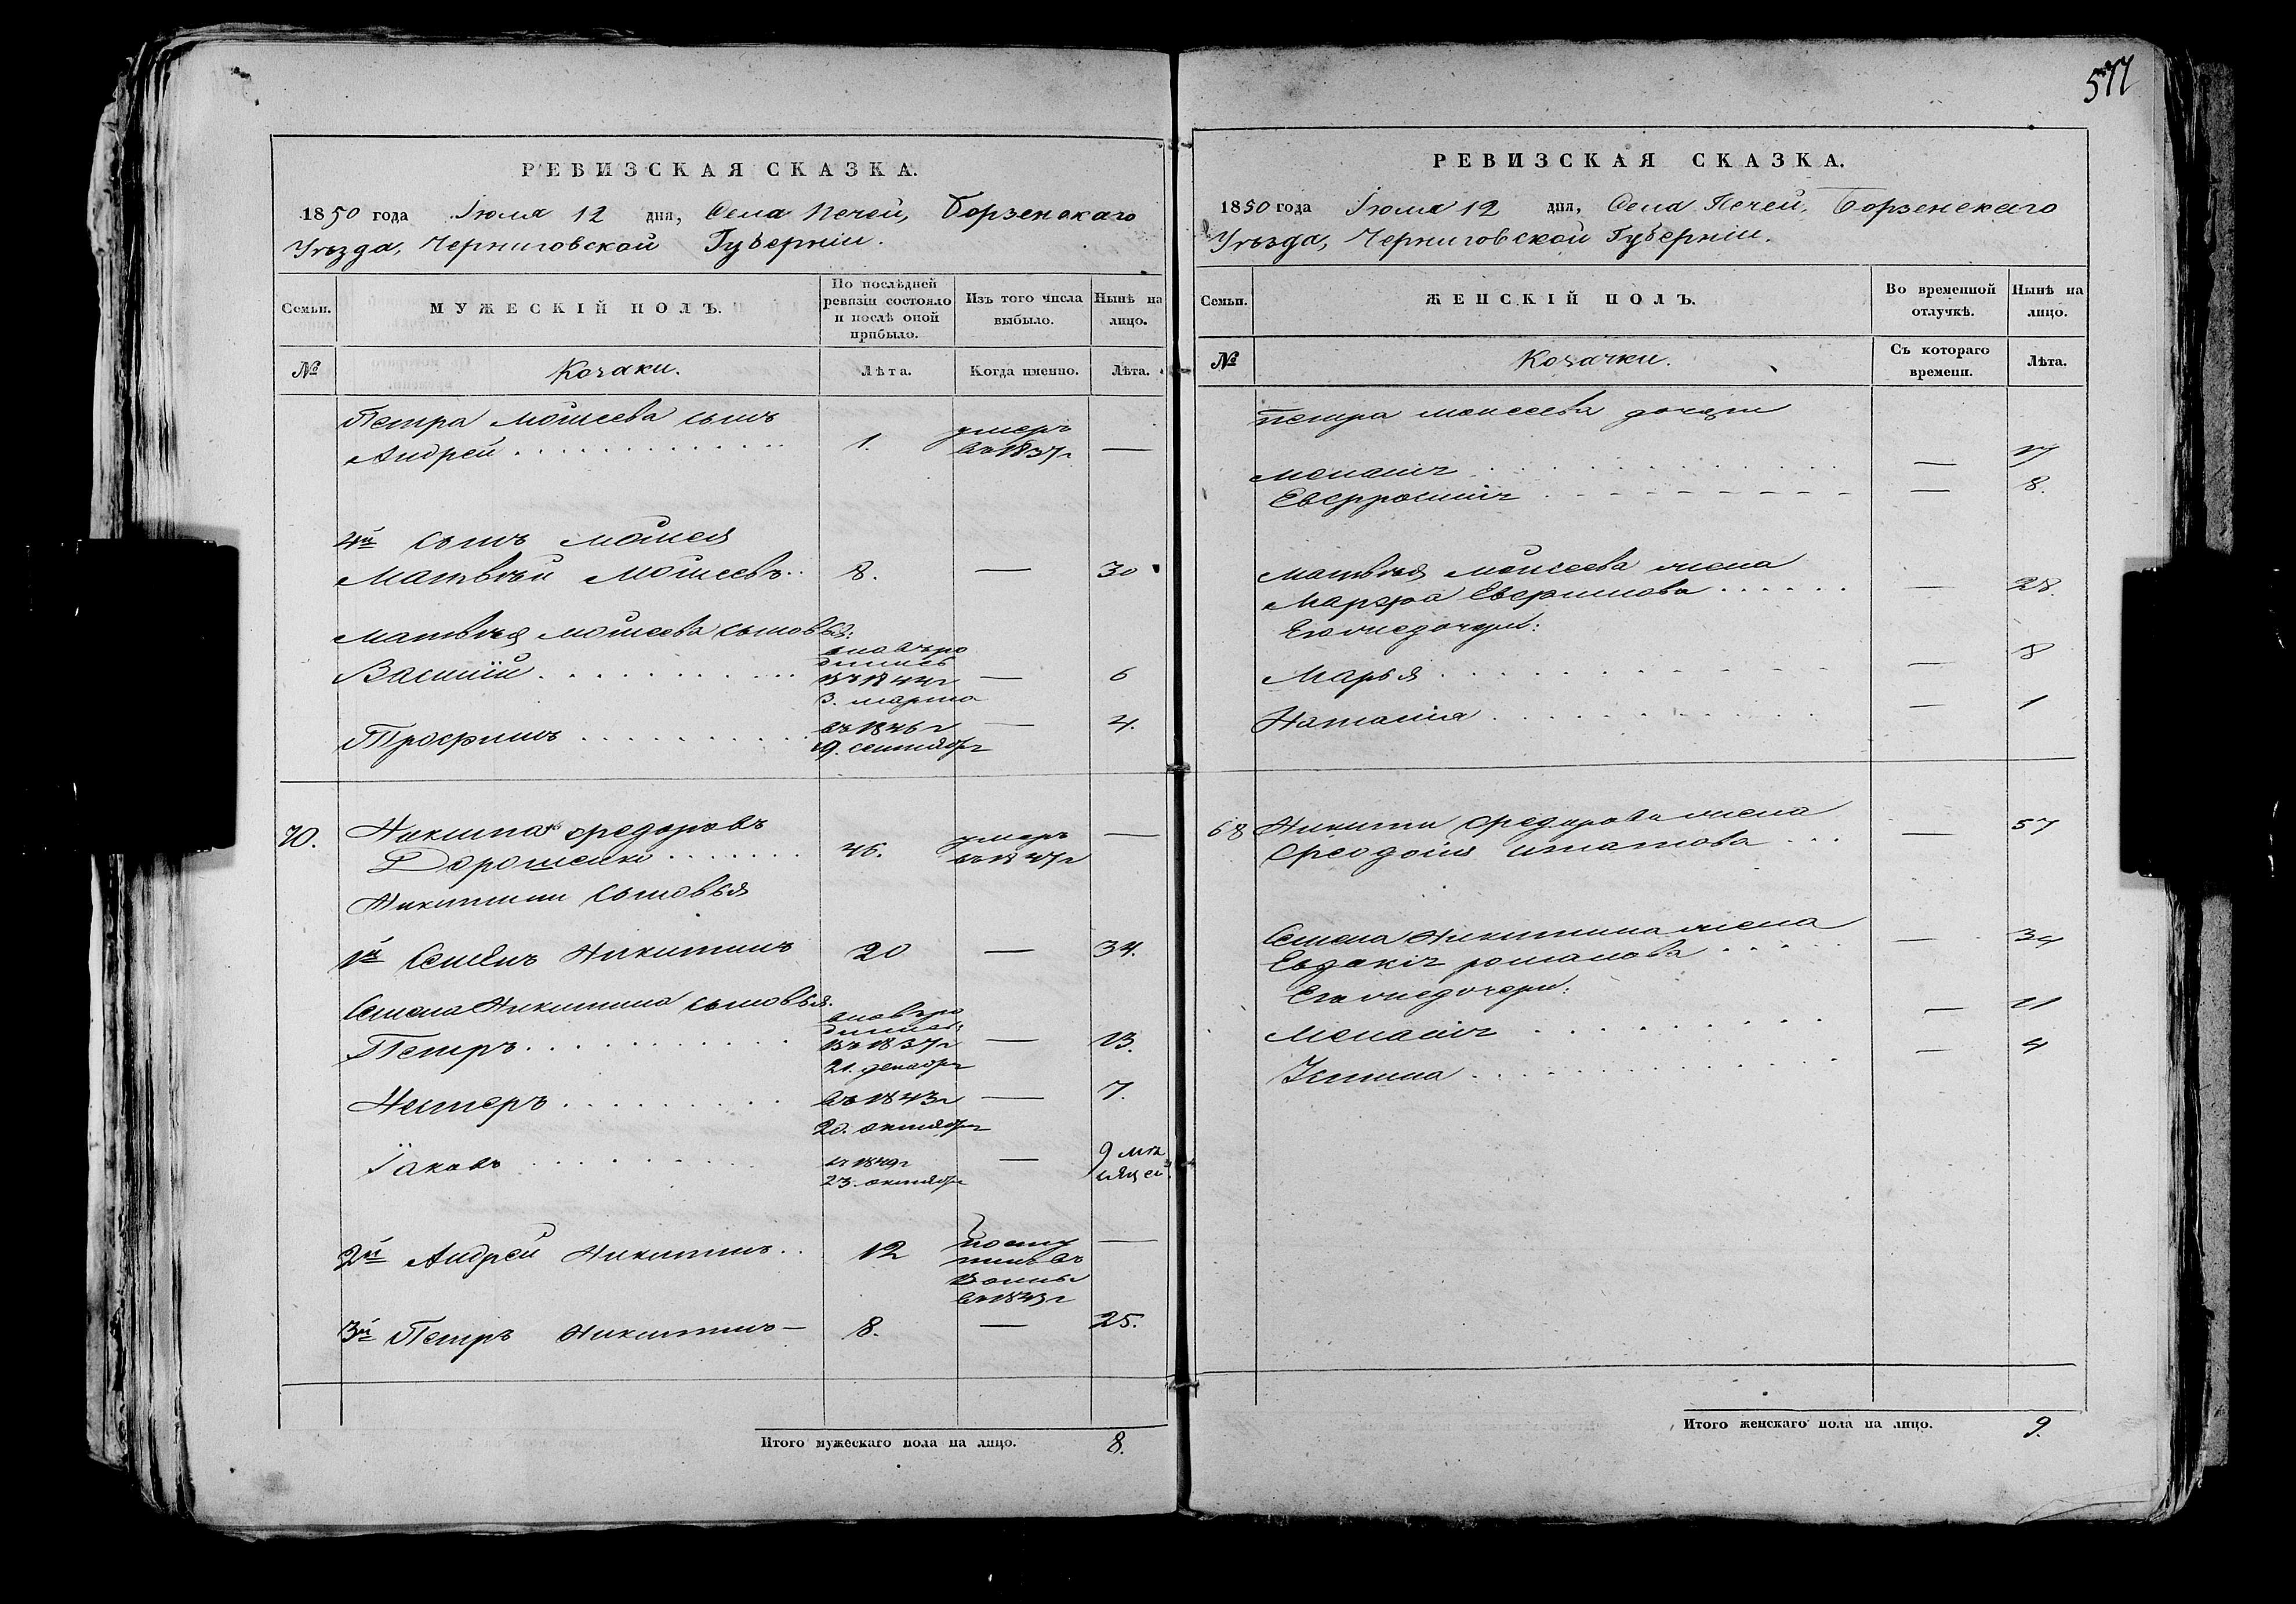 РЕВИЗСКАЯ СКАЗКА.
1850 года Іюля 12 дня, Села Печей, Борзенскаго
Уѣзда, Черниговской Губерніи.
Семьи.
МУЖЕСКІЙ ПОЛЪ.
По послѣдней
ревизіи состояло
и послѣ оной
прибыло.
Изъ того числа
выбыло.
Нынѣ на
лицо.
№
Козаки.
Лѣта.
Когда именно.
Лѣта.
Петра Моисеева сынъ
Андрей 1. умеръ въ 1837г —
4й сынъ Моисея
Матвѣй Моисеевъ 8. — 30
Матвѣя Моисеева сыновья:
Василій новоро
дились
въ 1844г — 6
3. марта
Трофимъ въ 1846г — 4.
19. сентября
70. Никита Федоровъ
Дорошенко 46. умеръ въ 1847г —
Никитины сыновья
1й Семенъ Никитинъ 20 — 34.
Семена Никитина сыновья
Петръ новоро
дились
въ 1837г — 13.
21. декабря
Нестеръ въ 1843г — 7.
20. октября
Іаковъ въ 1849г — 9 мѣ
сяцей
23. октября
2й Андрей Никитинъ 12 посту
пилъ въ
воины
въ 1843г —
3й Петръ Никитинъ — 8. — 25.
Итого мужескаго пола на лицо. 8.
577
РЕВИЗСКАЯ СКАЗКА.
1850 года Іюля 12 дня, Села Печей, Борзенскаго
Уѣзда, Черниговской Губерніи.
Семьи.
ЖЕНСКІЙ ПОЛЪ.
Во временной
отлучкѣ.
Нынѣ на
лицо.
№
Козачки.
Съ котораго
времени.
Лѣта.
Петра Моисеева дочери
Меланія — 17
Евфросинія — 8.
Матвѣя Моисеева жена
Марфа — 28.
Его же дочери:
Марья — 8
Наталія — 1
68 Никиты Федорова жена
Феодосія — 57
Семена Никитина жена
Евдокія Романова — 34
Его же дочери:
Меланія — 11
Устина — 4
Итого женскаго пола на лицо. 9.